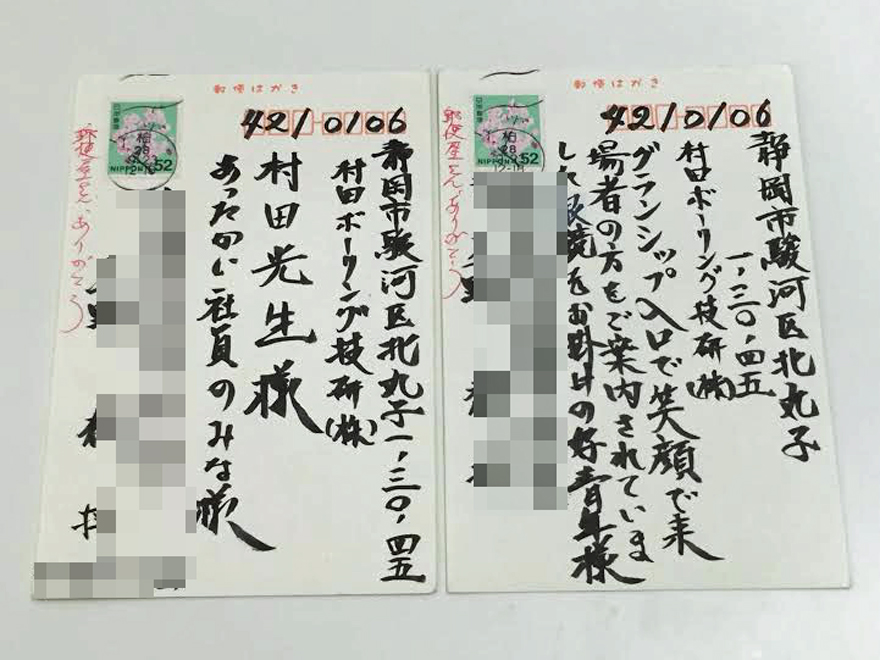 郵便はがき
4210106
静岡市駿河区北丸子一、三〇、四五
村田ボーリング技研(株)
村田光生様
あったかい社員のみな様
日本郵便
NIPPON 52
柏
28
郵便屋さん、ありがとう
郵便はがき
4210106
静岡市駿河区北丸子
一、三〇、四五
村田ボーリング技研(株)
グランシップ入口で笑顔で来
場者の方をご案内されていま
した眼鏡をお掛けの好青年様
日本郵便
NIPPON 52
柏
28
郵便屋さん、ありがとう